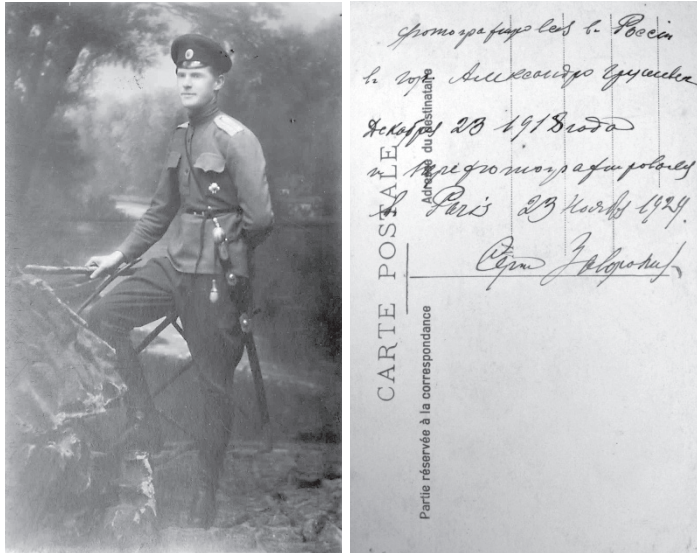 фотографировался в Россіи
в гор Александро Грушевск
Декабря 23 1918 года
и перефотографировался
в Paris 23 Ноября 1929.
CARTE POSTALE
Adresse du destinataire
Partie réservée à la correspondance